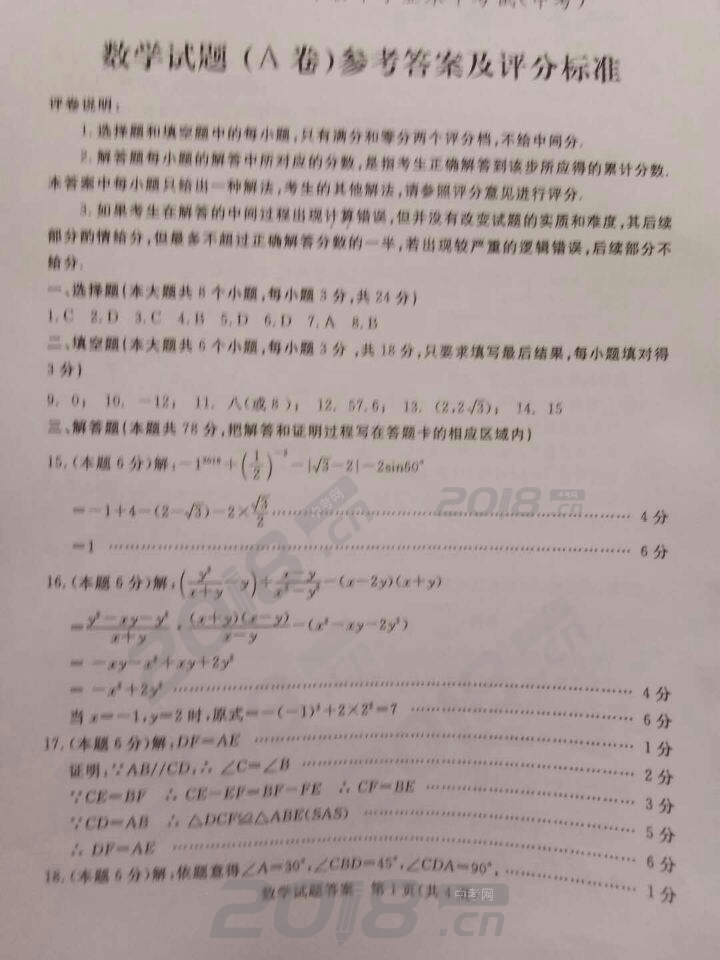 数学试题（A 卷）参考答案及评分标准
评卷说明：
1. 选择题和填空题中的每小题，只有满分和零分两个评分档，不给中间分.
2. 解答题每小题的解答中所对应的分数，是指考生正确解答到该步所应得的累计分数.
本答案中每小题只给出一种解法，考生的其他解法，请参照评分意见进行评分.
3. 如果考生在解答的中间过程出现计算错误，但并没有改变试题的实质和难度，其后续
部分酌情给分，但最多不超过正确解答分数的一半，若出现较严重的逻辑错误，后续部分不
给分.
一、选择题(本大题共 8 个小题，每小题 3 分，共 24 分)
1. C 2. D 3. C 4. B 5. D 6. D 7. A 8. B
二、填空题(本大题共 6 个小题，每小题 3 分，共 18 分，只要求填写最后结果，每小题填对得
3 分)
9. 0； 10. －12； 11. 八(或 8)； 12. 57.6； 13. (2,2√3)； 14. 15
三、解答题(本题共 78 分，把解答和证明过程写在答题卡的相应区域内)
15. (本题 6 分)解：－1²⁰¹⁸＋(1/2)⁻²－|√3－2|－2sin60°
＝－1＋4－(2－√3)－2×√3/2 …… 4 分
＝1 …… 6 分
16. (本题 6 分)解：(y²/(x+y)－y)÷(x－y)/(x²－y²)－(x－2y)(x＋y)
＝(y²－xy－y²)/(x+y)·(x+y)(x－y)/(x－y)－(x²－xy－2y²)
＝－xy－x²＋xy＋2y²
＝－x²＋2y² …… 4 分
当 x＝－1，y＝2 时，原式＝－(－1)²＋2×2²＝7 …… 6 分
17. (本题 6 分)解：DF＝AE …… 1 分
证明：∵AB//CD，∴∠C＝∠B …… 2 分
∵CE＝BF ∴CE－EF＝BF－FE ∴CF＝BE …… 3 分
∵CD＝AB ∴△DCF≌△ABE(SAS) …… 5 分
∴DF＝AE …… 6 分
18. (本题 6 分)解：依题意得∠A＝30°，∠CBD＝45°，∠CDA＝90°， …… 1 分
数学试题答案 第 1 页(共 4
中考网
2018.cn